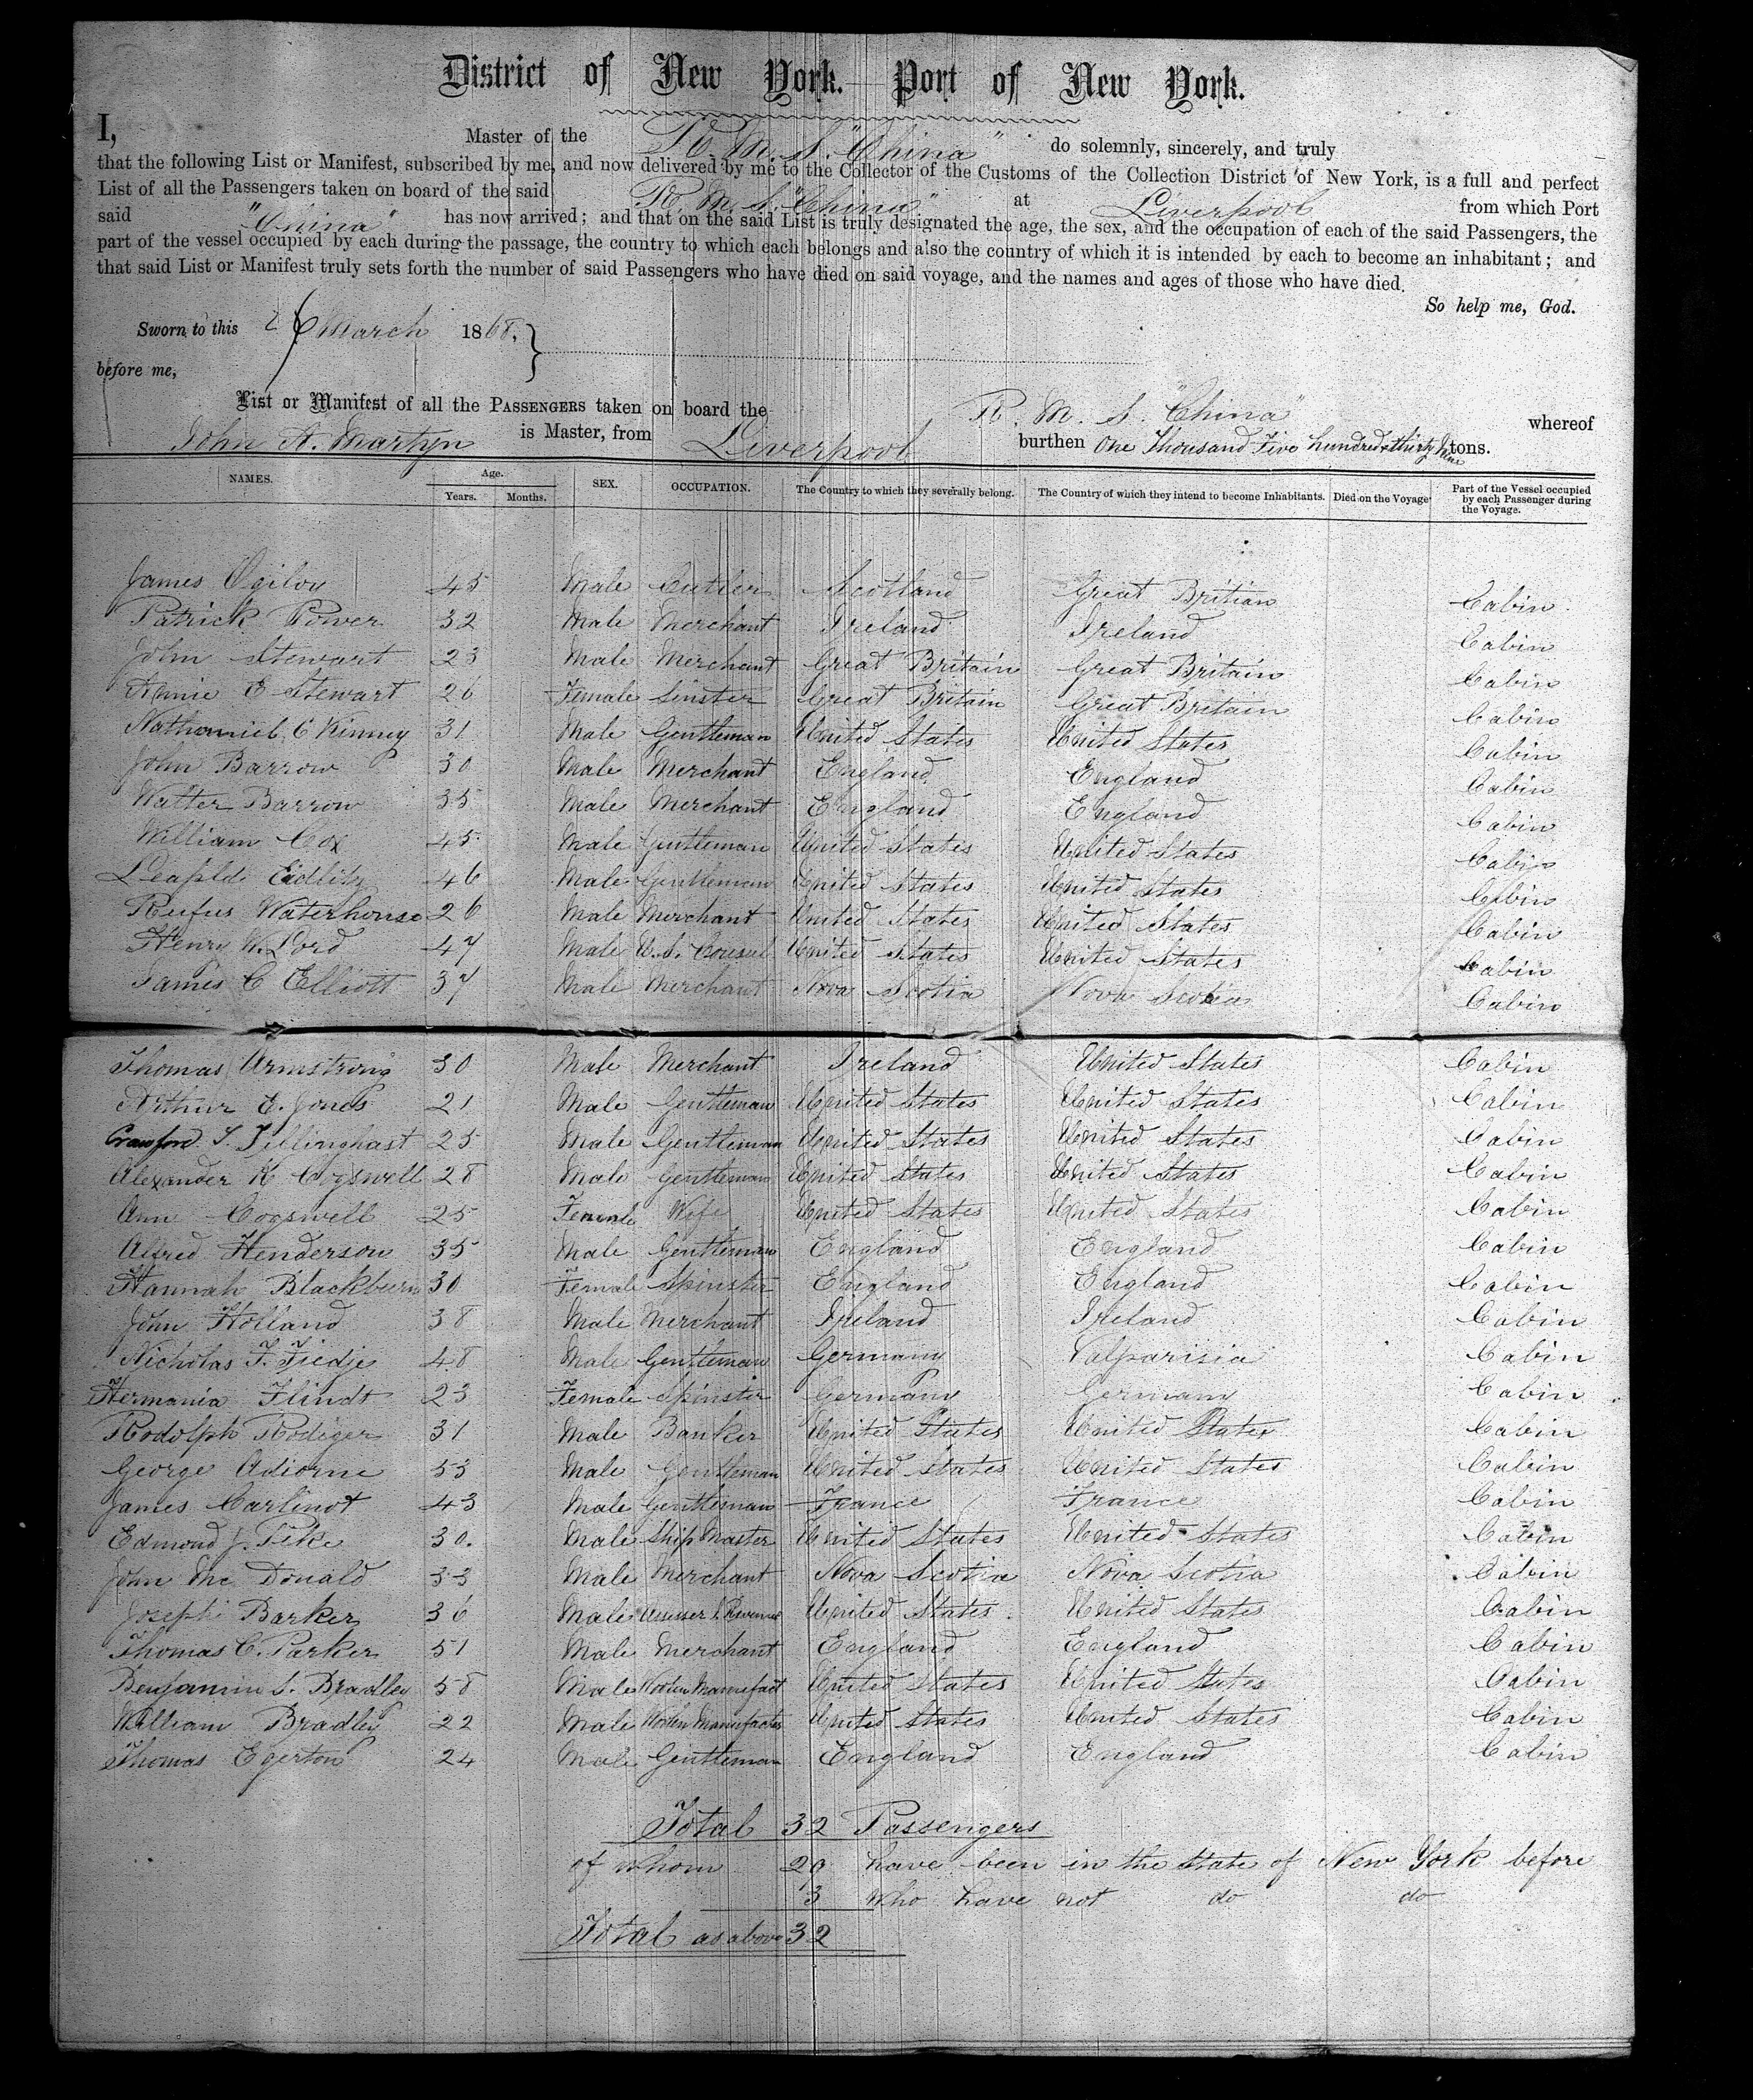 District of New York. Port of New York.
I, Master of the R. M. S. "China" do solemnly, sincerely, and truly
that the following List or Manifest, subscribed by me, and now delivered by me to the Collector of the Customs of the Collection District of New York, is a full and perfect
List of all the Passengers taken on board of the said R. M. S. "China" at Liverpool from which Port
said "China" has now arrived; and that on the said List is truly designated the age, the sex, and the occupation of each of the said Passengers, the
part of the vessel occupied by each during the passage, the country to which each belongs and also the country of which it is intended by each to become an inhabitant; and
that said List or Manifest truly sets forth the number of said Passengers who have died on said voyage, and the names and ages of those who have died.
So help me, God.
Sworn to this 26 March 1868.
before me,
List or Manifest of all the PASSENGERS taken on board the R. M. S. "China" whereof
John A. Martyn is Master, from Liverpool burthen One Thousand Five hundred & thirty Nine tons.
NAMES. Age. Years. Months. SEX. OCCUPATION. The Country to which they severally belong. The Country of which they intend to become Inhabitants. Died on the Voyage Part of the Vessel occupied by each Passenger during the Voyage.
James Ogilvy 45 Male Cutler Scotland Great Britian Cabin
Patrick Power 32 Male Merchant Ireland Ireland Cabin
John Stewart 23 Male Merchant Great Britain Great Britain Cabin
Annie E Stewart 26 Female Sinster Great Britain Great Britain Cabin
Nathaniel C Kinney 31 Male Gentleman United States United States Cabin
John Barrow 30 Male Merchant England England Cabin
Walter Barrow 35 Male Merchant England England Cabin
William Cox 45 Male Gentleman United States United States Cabin
Leapld Eidlitz 46 Male Gentleman United States United States Cabin
Rufus Waterhouse 26 Male Merchant United States United States Cabin
Henry W. Lord 47 Male U.S. Consul United States United States Cabin
James C Elliott 37 Male Merchant Nova Scotia Nova Scotia Cabin
Thomas Armstrong 30 Male Merchant Ireland United States Cabin
Arthur E. Jones 21 Male Gentleman United States United States Cabin
Crawford S. Tillinghast 25 Male Gentleman United States United States Cabin
Alexander K Cogswell 28 Male Gentleman United States United States Cabin
Ann Cogswell 25 Female Wife United States United States Cabin
Alfred Henderson 35 Male Gentleman England England Cabin
Hannah Blackburn 30 Female Spinster England England Cabin
John Holland 38 Male Merchant Ireland Ireland Cabin
Nicholas F. Fiedje 48 Male Gentleman Germany Valparisia Cabin
Hermania Flindt 23 Female Spinster Germany Germany Cabin
Rodolph Rodiger 31 Male Banker United States United States Cabin
George Adiorne 53 Male Gentleman United States United States Cabin
James Carlinot 43 Male Gentleman France France Cabin
Edmond J. Pike 30. Male Ship Master United States United States Cabin
John Mc Donald 33 Male Merchant Nova Scotia Nova Scotia Cabin
Joseph Barker 36 Male Assesser I. Revenue United States United States Cabin
Thomas C. Parker 51 Male Merchant England England Cabin
Benjamin S. Bradley 58 Male Woolen Manufact United States United States Cabin
William Bradley 22 Male Woolen Manufactor United States United States Cabin
Thomas Egerton 24 Male Gentleman England England Cabin
Total 32 Passengers
of whom 29 have been in the state of New York before
3 who have not do do
Total as above 32